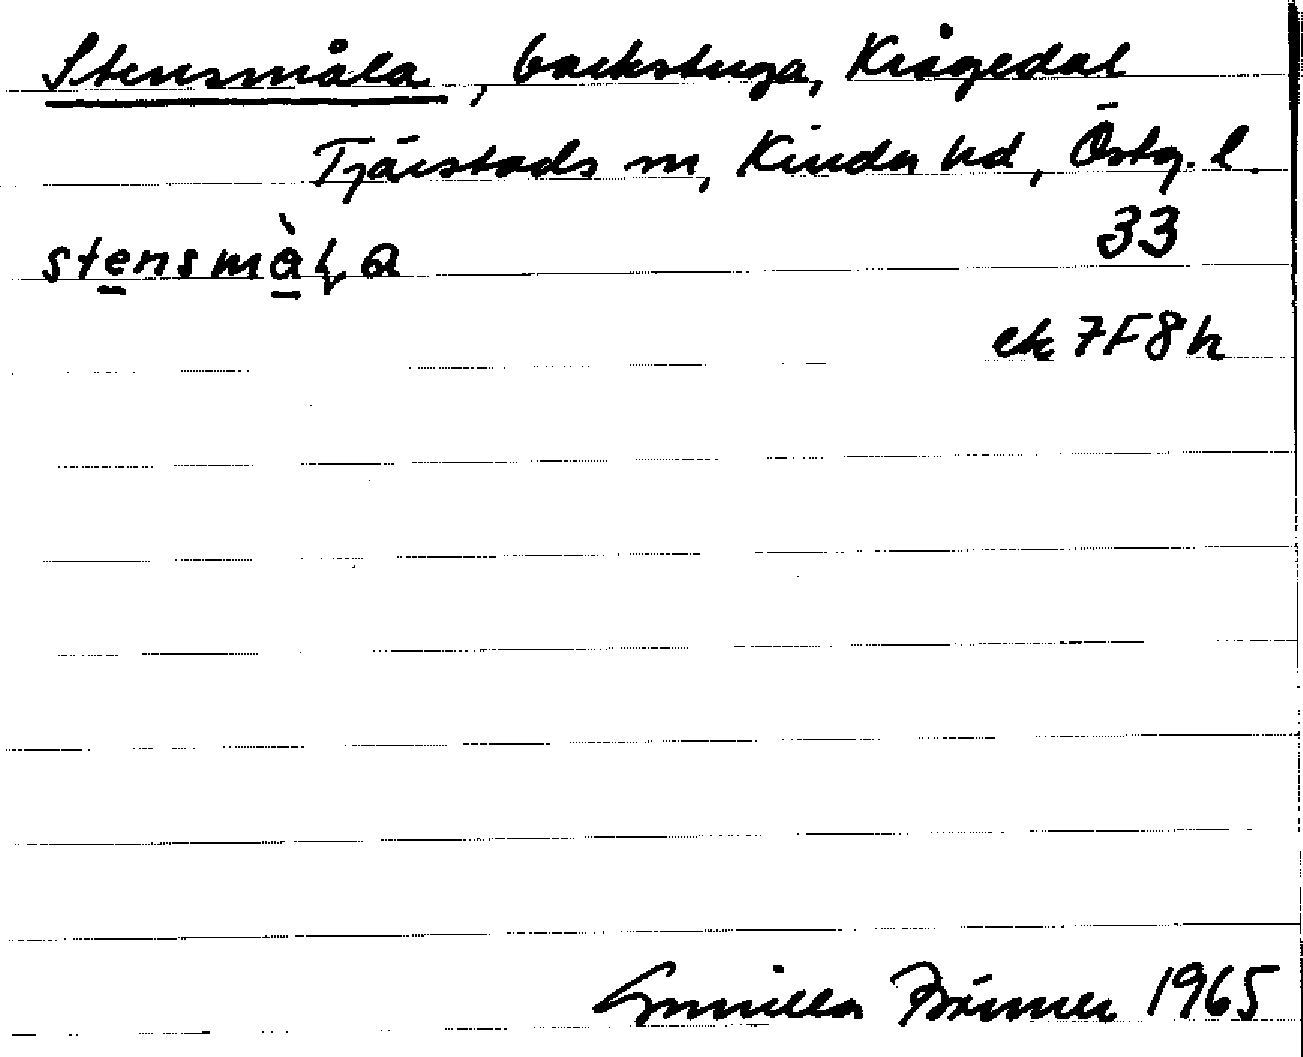 Stensmåla, backstuga, Krågedal
Tjärstads sn, Kinda hd, Östg. l.
stensmàl̨a 33
ek 7F8h
Gunilla 1965